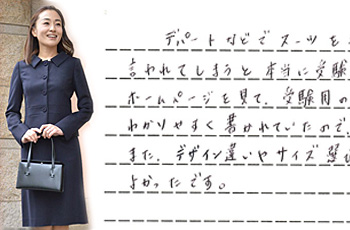 デパートなどでスーツを
言われてしまうと本当に受験
ホームページを見て、受験用の
わかりやすく書かれていたので、
また、デザイン違いやサイズ
よかったです。